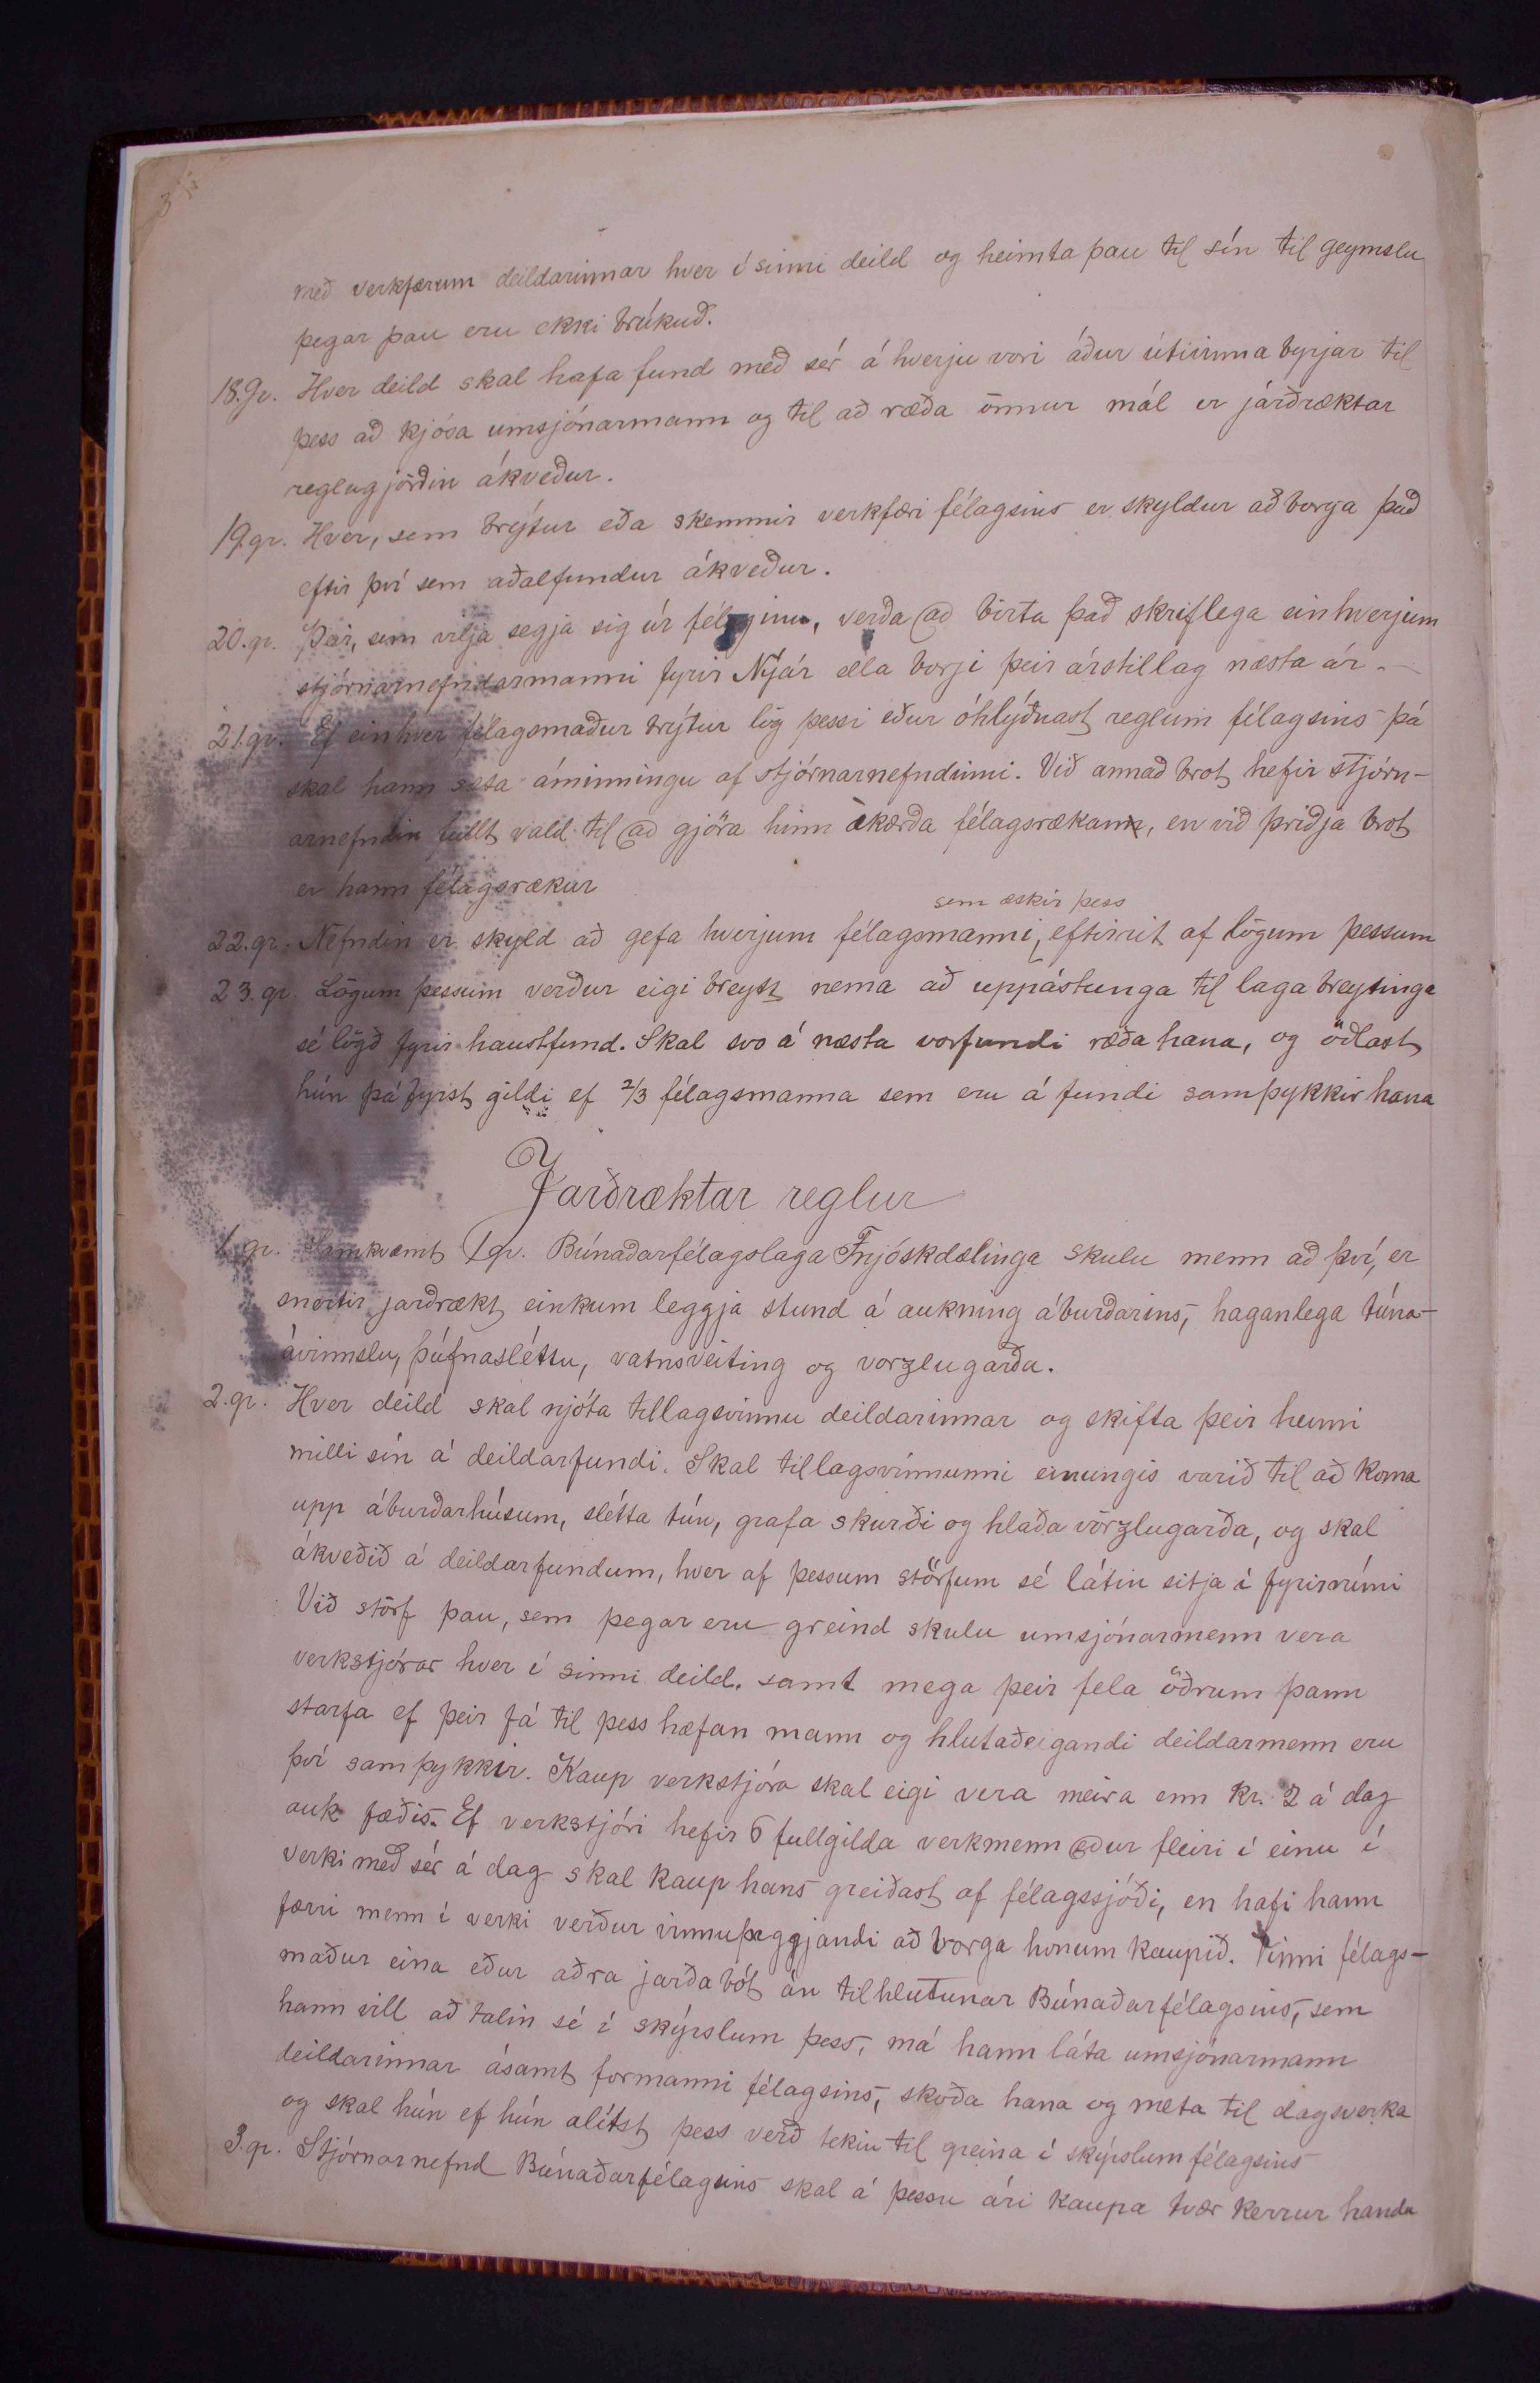 með verkfærum deildarinnar hver í sinni deild og heimta þau til sín til geymslu
þegar þau eru ekki brúkuð.
18.gr. Hver deild skal hafa fund með sér á hverju vori áður útivinna byrjar til
þess að kjósa umsjónarmann og til að ræða önnur mál er járðræktar
reglugjörðin ákveður.
19.gr. Hver, sem brýtur eða skemmir verkfæri félagsins er skyldur að borga það
eftir því sem aðalfundur ákveður.
20.gr. Þeir, sem vilja segja sig úr félaginu, verða að birta það skriflega einhverjum
stjórnarnefndarmanni fyrir Nýár ella borji þeir árstillag næsta ár.–
21.gr. Ef einhver félagsmaður brýtur lög þessi eður óhlýðnast reglum félagsins þá
skal hann sæta áminningu af stjórnarnefndinni. Við annað brot hefir stjórn-
arnefndin fullt vald til að gjöra hinn ákærða félagsrækann, en við þriðja brot
er hann félagsrækur
sem æskir þess
22.gr. Nefndin er skyld að gefa hverjum félagsmanni, eftirrit af lögum þessum
23.gr. Lögum þessum verður eigi breytt nema að uppástunga til laga breytinga
sé lögð fyrir haustfund. Skal svo á næsta vorfundi ræða hana, og öðlast
hún þá fyrst gildi ef 2/3 félagsmanna sem eru á fundi samþykkir hana
Jarðræktar reglur
1.gr. Samkvæmt 1gr. Búnaðarfélagslaga Fnjóskdælinga skulu menn að því, er
snertir jarðrækt einkum leggja stund á aukning áburðarins, haganlega túna-
ávinnslu, þúfnasléttu, vatnsveiting og vorzlugarða.
2.gr. Hver deild skal njóta tillagsvinnu deildarinnar og skifta þeir henni
milli sín á deildarfundi. Skal tillagsvinnunni einungis varið til að koma
upp áburðarhúsum, slétta tún, grafa skurði og hlaða vörzlugarða, og skal
ákveðið á deildarfundum, hver af þessum störfum sé látin sitja í fyrirrúmi
Við störf þau, sem þegar eru greind skulu umsjónarmenn vera
verkstjórar hver í sinni deild. samt mega þeir fela öðrum þann
starfa ef þeir fá til þess hæfan mann og hlutaðeigandi deildarmenn eru
því samþykkir. Kaup verkstjóra skal eigi vera meira enn Kr. 2 á dag
auk fæðis. Ef verkstjóri hefir 6 fullgilda verkmenn eður fleiri í einu í
verki með sér á dag skal kaup hans greiðast af félagssjóði, en hafi hann
færri menn í verki verður vinnuþeggjandi að borga honum kaupið. Vinni félags-
maður eina eður aðra jarðabót án tilhlutunar Búnaðarfélagsins, sem
hann vill að talin sé í skýrslum þess, má hann láta umsjónarmann
deildarinnar ásamt formanni félagsins, skoða hana og meta til dagsverka
og skal hún ef hún alítst þess verð tekin til greina í skýrslum félagsins
3.gr. Stjórnarnefnd Búnaðarfélagsins skal á þessu ári kaupa tvær kerrur handa